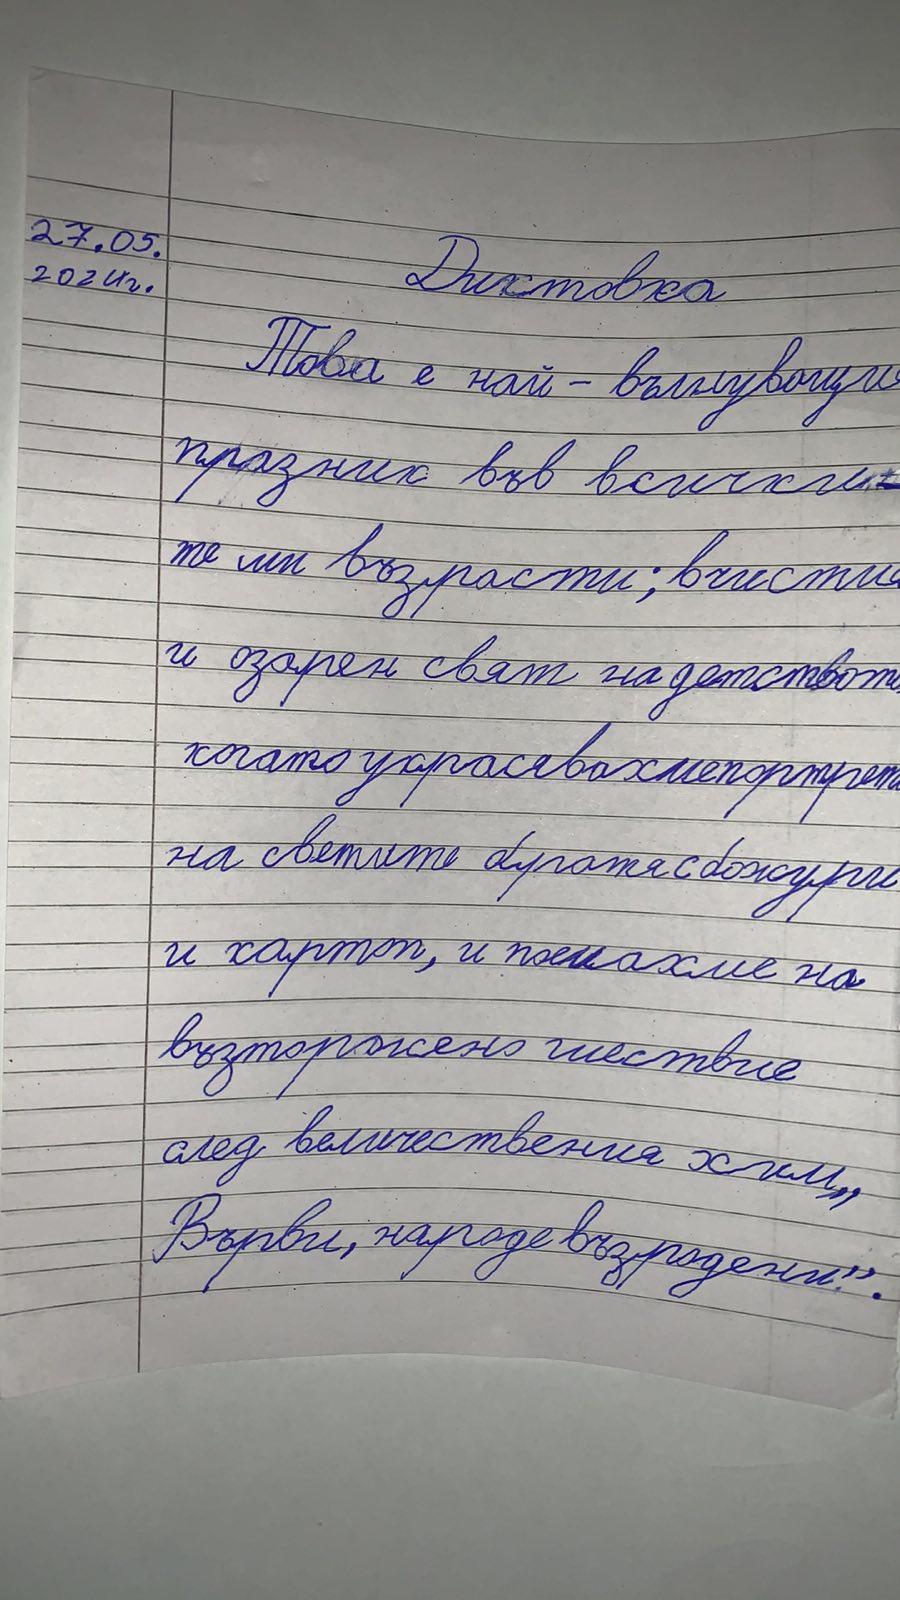 27.05.
2024г.
Диктовка
Това е най - вълнуващия
празник във всички-
те ми възрасти; в чистия
и озарен свят на детството,
когато украсявахме портрета
на светите братя с божури
и картоп, и поемахме на
възторжено шествие
след величествения химн „
Върви, народе възродени".